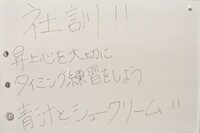 社訓!!
昇上心を大切に
タイミング練習をしよう
青汁とシュークリーム!!